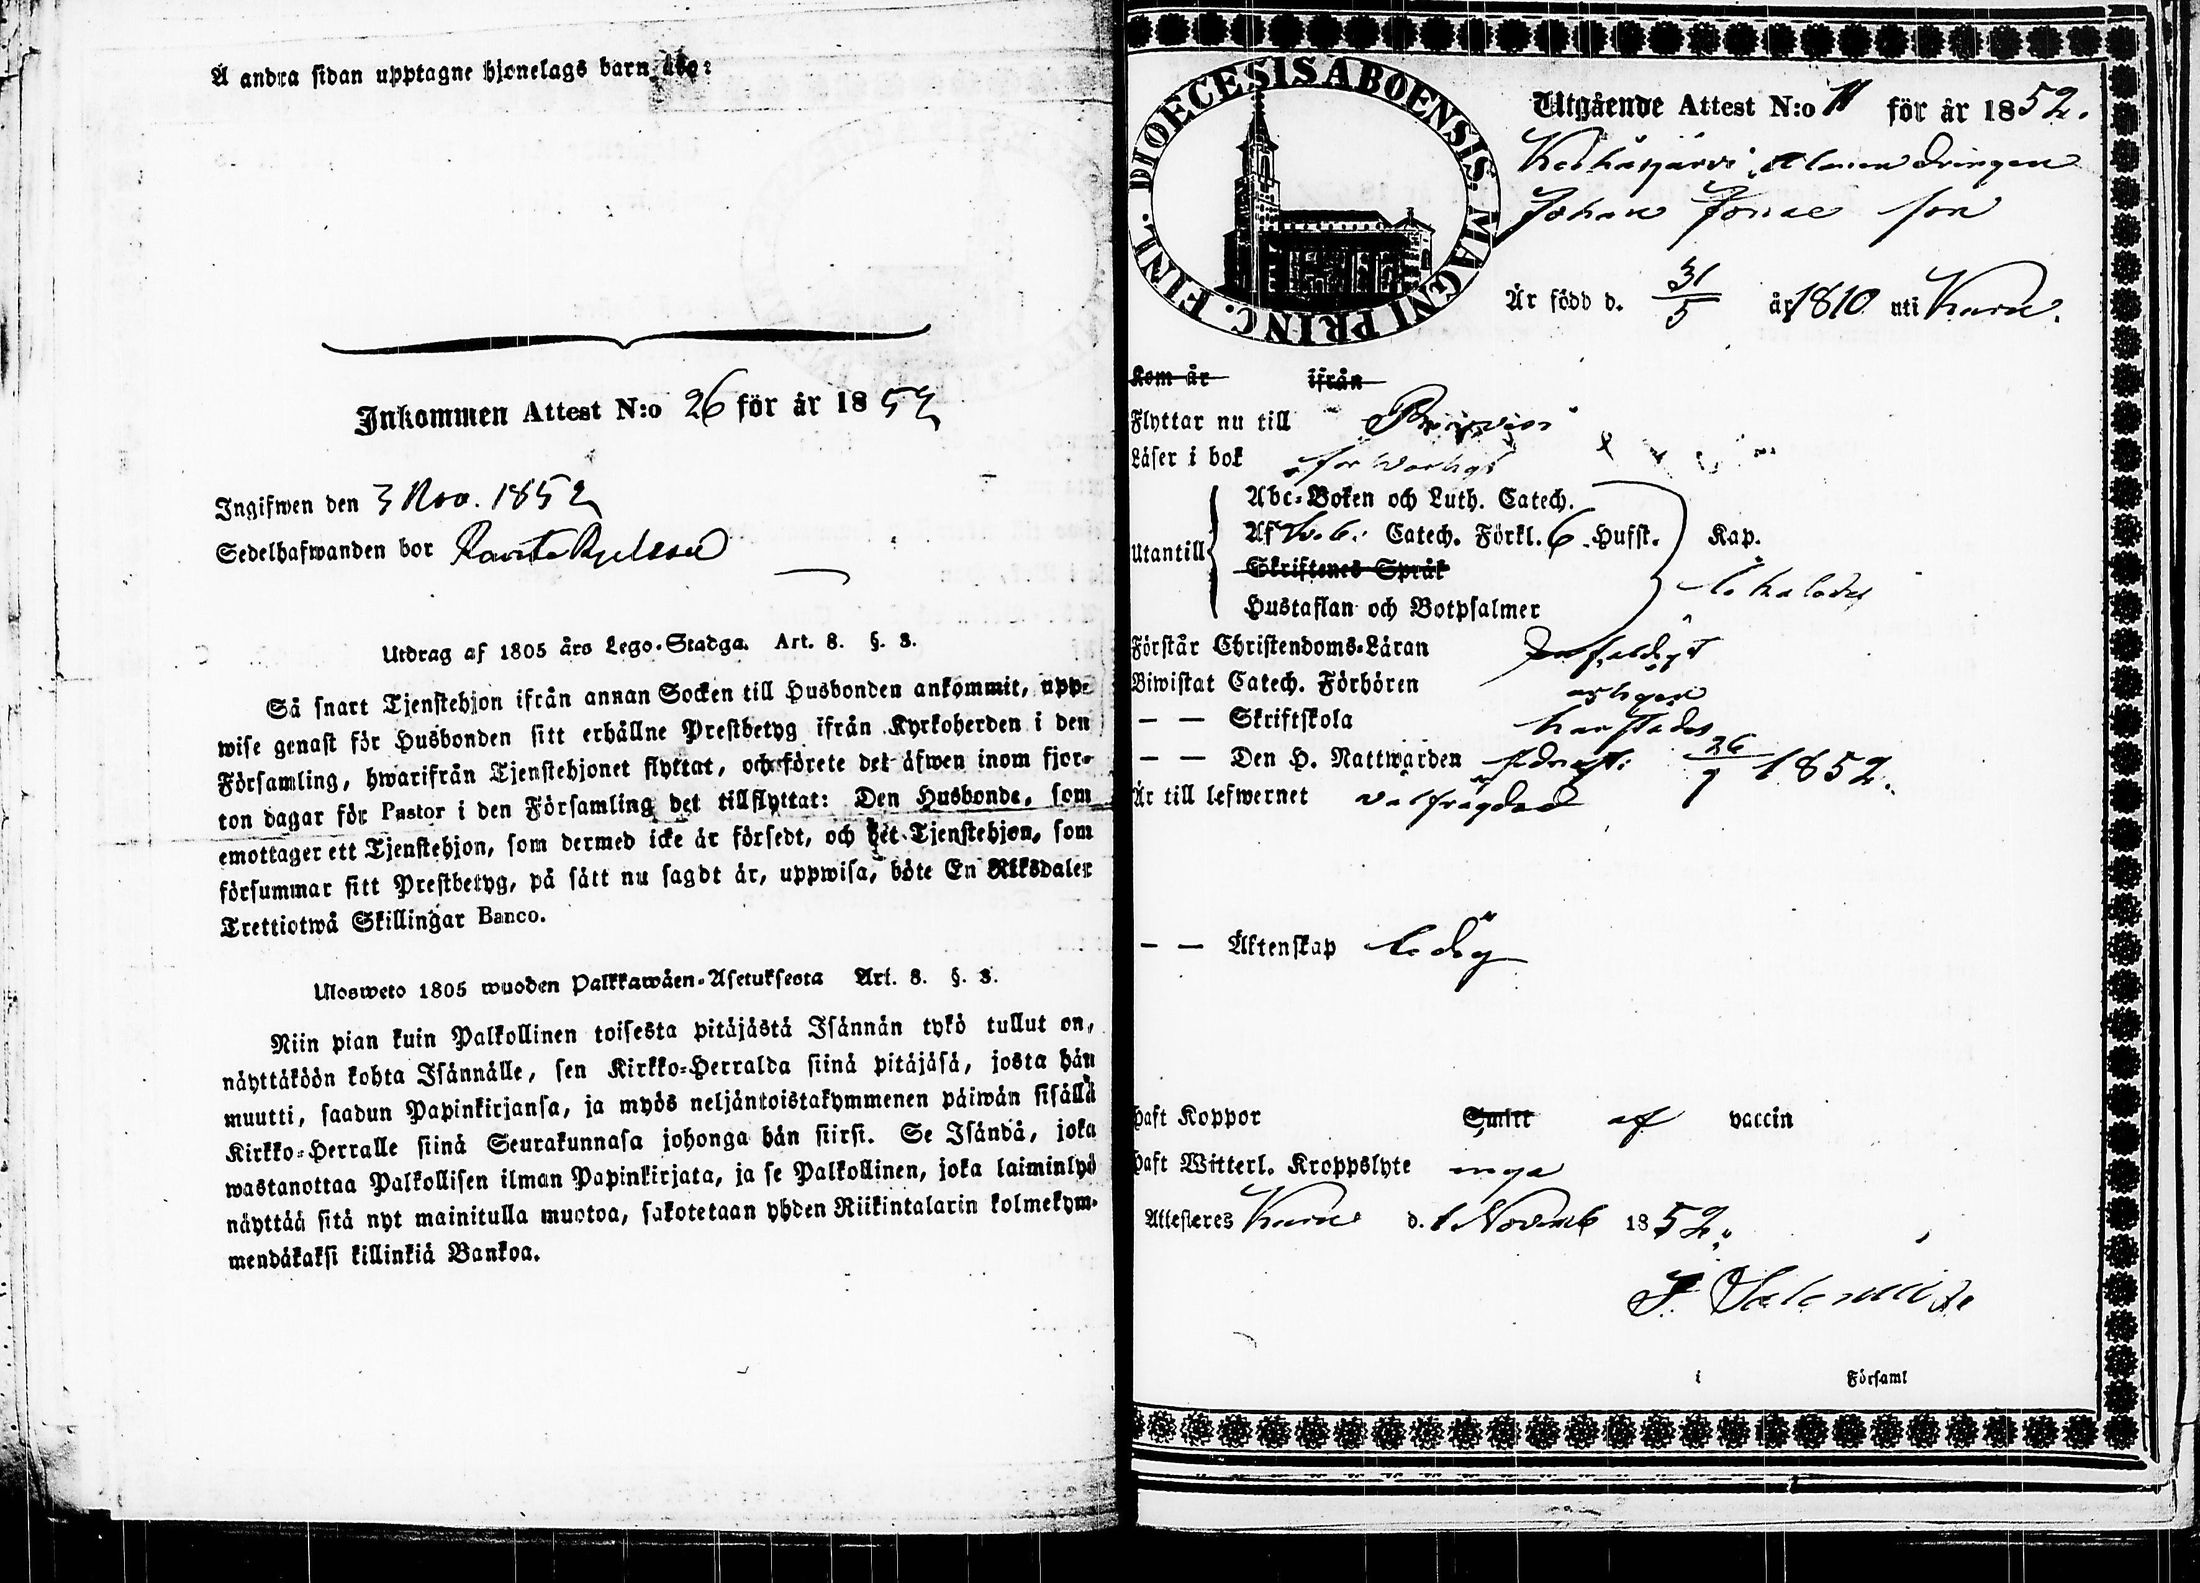 Å andra sidan upptagne hjonelags barn äro:
Inkommen Attest N:o 26 för år 1852
Ingifwen den 3 Nov. 1852
Sedelhafwanden bor
Utdrag af 1805 års Lego-Stadga. Art. 8. §. 3.
Så snart Tjenstehjon ifrån annan Socken till Husbonden ankommit, upp=
wise genast för Husbonden sitt erhållne Prestbetyg ifrån Kyrkoherden i den
Församling, hwarifrån Tjenstehjonet flyttat, och förete det äfwen inom fjor=
ton dagar för Pastor i den Församling det tillflyttat: Den Husbonde, som
emottager ett Tjenstehjon, som dermed icke är försedt, och det Tjenstehjon, som
försummar sitt Prestbetyg, på sätt nu sagdt är, uppwisa, böte En Riksdaler
Trettiotwå Skillingar Banco.
Ulosweto 1805 wuoden Palkkawäen-Asetuksesta Art. 8. §. 3.
Niin pian kuin Palkollinen toisesta pitäjästä Isännän tykö tullut on,
näyttäköön kohta Isännälle, sen Kirkko=Herralda siinä pitäjäsä, josta hän
muutti, saadun Papinkirjansa, ja myös neljäntoistakymmenen päiwän sisällä
Kirkko=Herralle siinä Seurakunnasa johonga hän siirsi. Se Isändä, joka
wastanottaa Palkollisen ilman Papinkirjata, ja se Palkollinen, joka laiminlyö
näyttää sitä nyt mainitulla muotoa, sakotetaan yhden Riikintalarin kolmekym=
mendäkaksi killinkiä Bankoa.
DIOECESIS ABOENSIS. MAGNI PRINC. FINL.
Utgående Attest N:o 11 för år 1852.
drengen
Johan Jonae son
Är född d. 31/5 år 1810 uti Karu.
Kom år ifrån
Flyttar nu till
Läser i bok försvarligt
Utantill
Abc=Boken och Luth. Catech.
Af Catech. Förkl. 6 Hufst. Kap.
Skriftenes Språk
Hustaflan och Botpsalmer
Förstår Christendoms=Läran enfaldigt
Biwistat Catech. Förhören årligen
— — Skriftskola
— — Den H. Nattwarden 26/9 1852.
Är till lefwernet välfrägdad
— — Äktenskap ledig
Haft Koppor Smitt af vaccin
Haft Witterl. Kroppslyte inga
Attesteres Karu d. 1 Novemb 1852.
i Församl